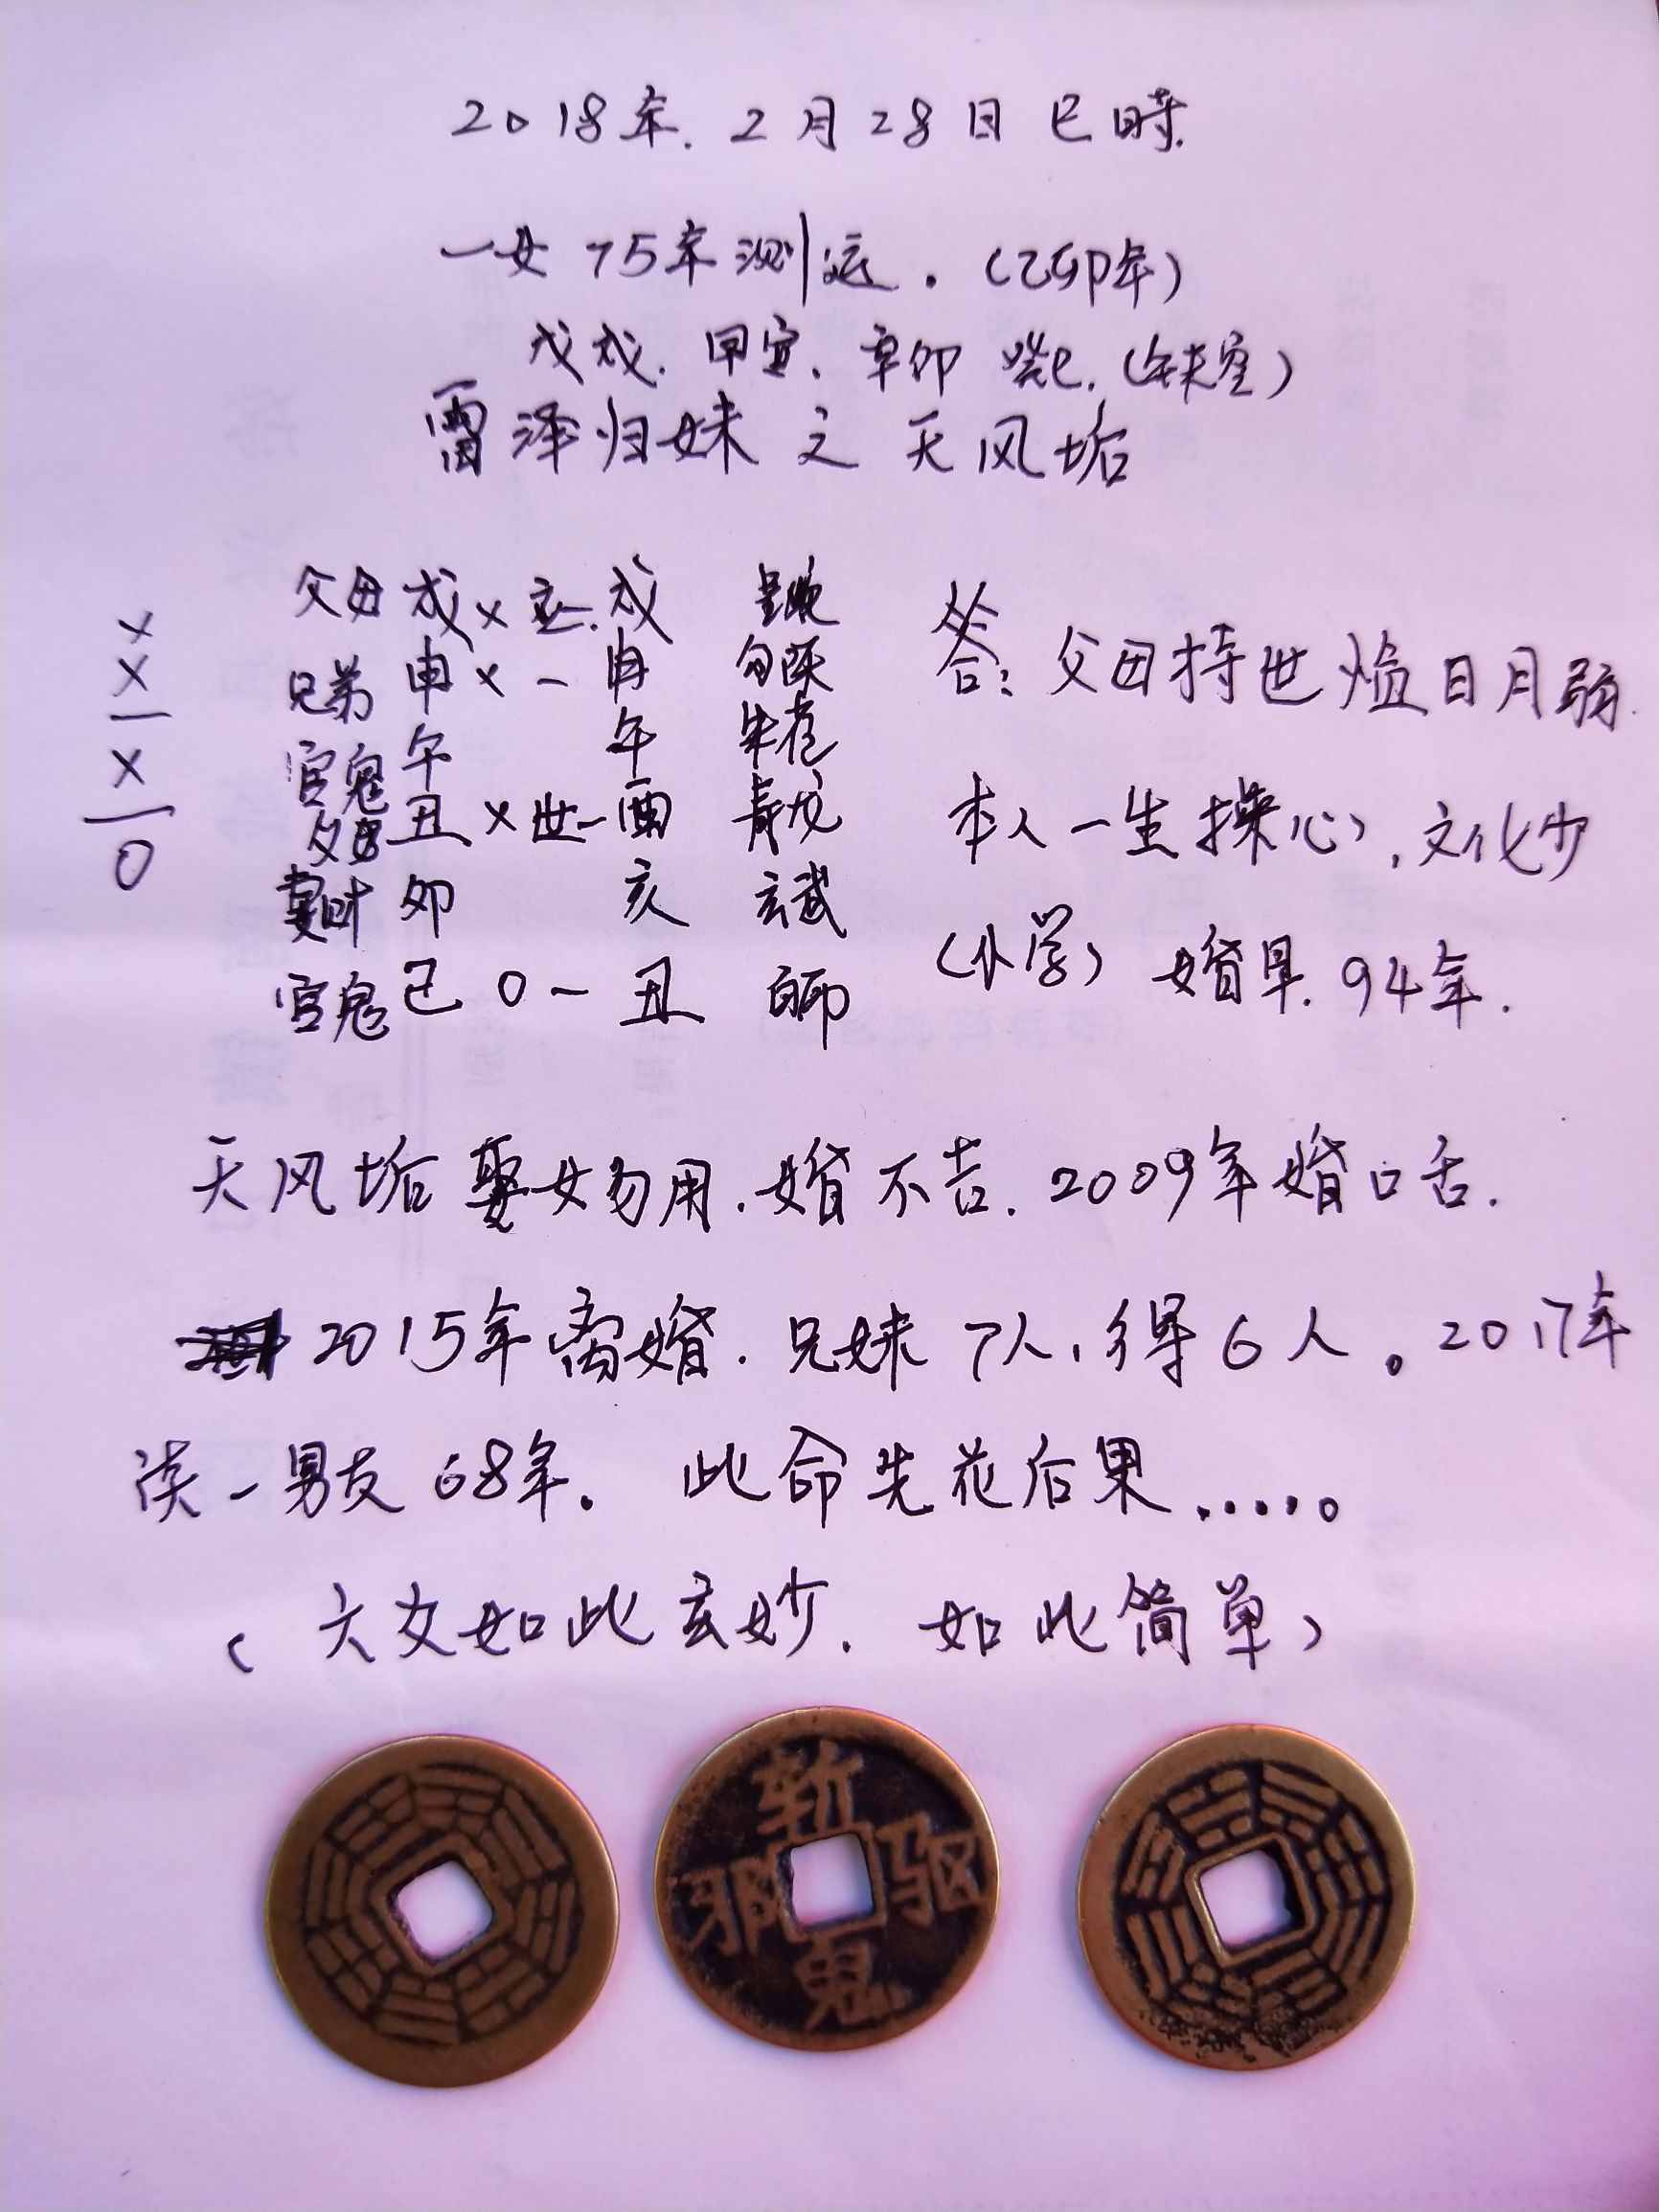 2018年.2月28日巳時.
一女75年测运.(乙卯年)
戊戌.甲寅.辛卯 癸巳.(午未空)
雷泽归妹之天风垢
父母 戌 × 应. 戌
兄弟 申 × - 申 勾陈
官鬼 午 午 朱雀
父母 丑 × 世 - 酉 青龙
妻财 卯 亥 玄武
官鬼 巳 0 - 丑 白虎
×
×
—
×
—
0
答:父母持世临日月弱.
本人一生操心,文化少
(小学)婚早.94年.
天风垢娶女勿用.婚不吉.2009年婚口舌.
2015年离婚.兄妹7人,得6人。2017年
谈一男友68年。此命先花后果.....。
(六爻如此玄妙.如此简单)
斩 驱 鬼 邪